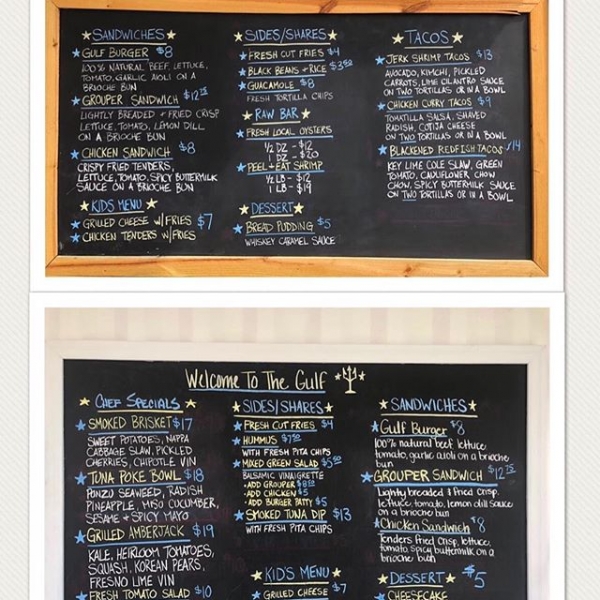 SANDWICHES
GULF BURGER $8
100% NATURAL BEEF, LETTUCE,
TOMATO, GARLIC AIOLI ON A
BRIOCHE BUN
GROUPER SANDWICH $12.75
LIGHTLY BREADED + FRIED CRISP
LETTUCE, TOMATO, LEMON DILL
ON A BRIOCHE BUN
CHICKEN SANDWICH $8
CRISPY FRIED TENDERS,
LETTUCE, TOMATO, SPICY BUTTERMILK
SAUCE ON A BRIOCHE BUN
KIDS MENU
GRILLED CHEESE W/FRIES $7
CHICKEN TENDERS W/FRIES
SIDES/SHARES
FRESH CUT FRIES $4
BLACK BEANS + RICE $3.50
GUACAMOLE $8
FRESH TORTILLA CHIPS
RAW BAR
FRESH LOCAL OYSTERS
1/2 DZ - $12
1 DZ - $20
PEEL + EAT SHRIMP
1/2 LB - $12
1 LB - $19
DESSERT
BREAD PUDDING $5
WHISKEY CARAMEL SAUCE
TACOS
JERK SHRIMP TACOS $13
AVOCADO, KIMCHI, PICKLED
CARROTS, LIME CILANTRO SAUCE
ON TWO TORTILLAS OR IN A BOWL
CHICKEN CURRY TACOS $9
TOMATILLA SALSA, SHAVED
RADISH, COTIJA CHEESE
ON TWO TORTILLAS OR IN A BOWL
BLACKENED REDFISH TACOS $14
KEY LIME COLE SLAW, GREEN
TOMATO, CAULIFLOWER CHOW
CHOW, SPICY BUTTERMILK SAUCE
ON TWO TORTILLAS OR IN A BOWL
Welcome To The Gulf
CHEF SPECIALS
SMOKED BRISKET $17
SWEET POTATOES, NAPPA
CABBAGE SLAW, PICKLED
CHERRIES, CHIPOTLE VIN
TUNA POKE BOWL $18
PONZU SEAWEED, RADISH
PINEAPPLE, MISO CUCUMBER,
SESAME + SPICY MAYO
GRILLED AMBERJACK $19
KALE, HEIRLOOM TOMATOES,
SQUASH, KOREAN PEARS,
FRESNO LIME VIN
FRESH TOMATO SALAD $10
SIDES/SHARES
FRESH CUT FRIES $4
HUMMUS $7.50
WITH FRESH PITA CHIPS
MIXED GREEN SALAD $5.50
BALSAMIC VINAIGRETTE
- ADD GROUPER
- ADD CHICKEN $5
- ADD BURGER PATTY $5
SMOKED TUNA DIP $13
WITH FRESH PITA CHIPS
KID'S MENU
GRILLED CHEESE $7
SANDWICHES
Gulf Burger $8
100% natural beef lettuce
tomato, garlic aioli on a brioche
bun
GROUPER SANDWICH $12.75
Lightly breaded & fried crisp.
lettuce, tomato, lemon dill sauce
on a brioche bun
Chicken Sandwich $8
Tenders fried crisp, lettuce,
tomato spicy buttermilk on a
brioche bun
DESSERT $5
CHEESECAKE